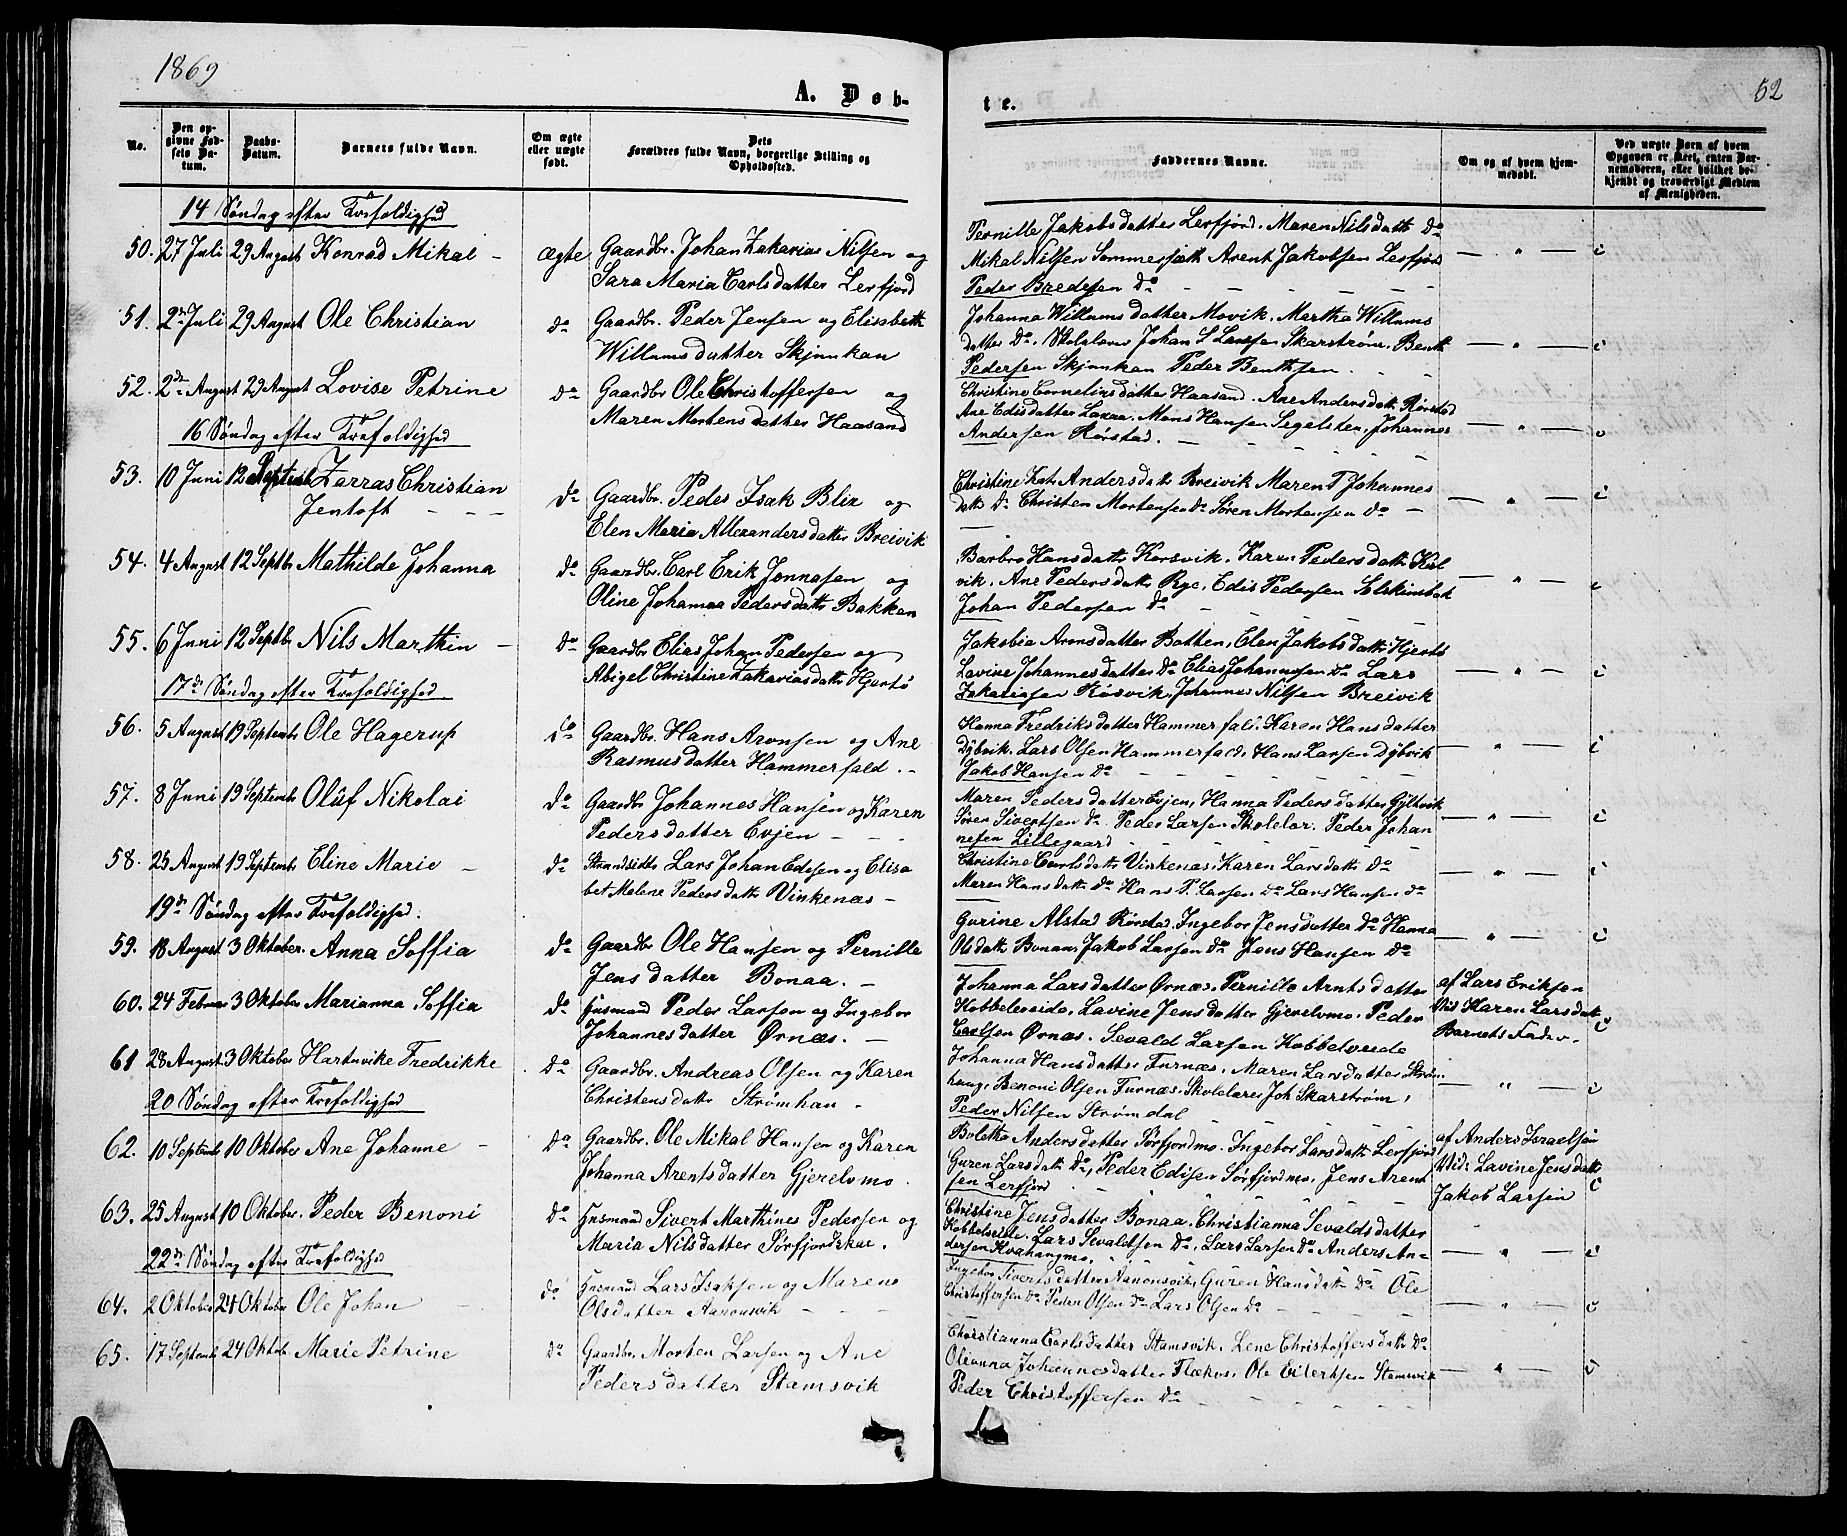 1869
A. Døb-
te.
52
No.
Den op-
givne Fød-
sels Da-
tum.
Daabs-
Datum.
Barnets fulde Navn.
Om ægte
eller uægte
født.
Dets
Forældres fulde Navn, borgerlige Stilling og
Opholdssted.
Faddernes Navne.
Om og af hvem hjem-
medøbt.
Ved uægte Børn af hvem
Opgaven er skeet, enten Bar-
nemoderen, eller hvilket be-
kjendt og troværdigt Medlem
af Menigheden.
14 Søndag efter Trefoldighed
50. 27 Juli 29 August Konrad Mikal - ægte Gaardbr. Johan Zakarias Nilsen og
Sara Maria Carlsdatter Lerfjord
Pernille Jakobsdatter Lerfjord. Maren Nilsdattr Do
Mikal Nilsen Sommersæth Arent Jakobsen Lerfjord
Peder Bredesen Do
51. 2den Juli 29 August Ole Christian Do Gaardbr. Peder Jensen og Elisabeth
Willumsdatter Skjunkan
Johanna Willumsdatter Movik. Martha Willums
datter Do. Skolelærer Johan S Larsen Skarstrøm. Benth
Pedersen Skjunkan Peder Benthsen.
52. 2den August 29 August Lovise Petrine Do Gaardbr Ole Christoffersen og
Maren Mortensdatter Haasand
Christine Corneliusdatter Haasand. Ane Andersdattr Rørstad
Ane Edisdatter Laxaa. Mons Hansen Segelsten, Johannes
Andersen Rørstad.
16 Søndag efter Trefoldighed
53. 10 Juni 12 Septembr Zarras Christian
Jentoft
Do Gaardbr. Peder Isak Blix og
Elen Maria Allexandersdatter Breivik
Christine Kat. Andersdattr Breivik Maren T Johannes
dattr Do Christen Mortensen Do Søren Mortensen Do
54. 4 August 12 Septbr Mathilde Johanna Do Gaardbr. Carl Erik Jonnasen og
Oline Johanna Pedersdattr Bakken
Barbro Hansdattr Korsvik. Karen Pedersdattr Kel
vik. Ane Pedersdattr Rye, Edis Pedersen Solskinsbak
Johan Pedersen Do
55. 6 Juni 12 Septbr Nils Marthin - Do Gaardbr Elias Johan Pedersen og
Abigel Christine Zakariasdattr Hjertø
Jakobia Aronsdatter Botten, Elen Jakobsdattr Hjertø
Lavine Johannesdatter Do Elias Johannesen Do Lars
Zakariasen Røsvik, Johannes Nilsen Breivik
17de Søndag efter Trefoldighed
56. 5 August 19 Septembr Ole Hagerup Do Gaardbr. Hans Aronsen og Ane
Rasmusdatter Hammerfald.
Hanna Fredriksdatter Hammerfald. Karen Hansdatter
Dybvik. Lars Olsen Hammerfald. Hans Larsen Dybvik
Jakob Hansen Do
57. 8 Juni 19 Septembr Oluf Nikolai Do Gaardbr Johannes Hansen og Karen
Pedersdatter Evjen
Maren Pedersdatter Evjen, Hanna Pedersdatter Gyltvik
Søren Sivertsen Do Peder Larsen Skolelær. Peder Johan
nesen Lillegaard
58. 25 August 19 Septembr Eline Marie - Do Strandsidder Lars Johan Edisen og Elisa
bet Malene Pedersdattr Vinkenæs
Christine Carlsdattr Vinkenæs. Karen Larsdattr Do
Maren Hansdattr Do Hans P. Larsen Do Lars Hansen Do
19de Søndag efter Trefoldighed.
59. 18 August 3 Oktober. Anna Soffia Do Gaardbr Ole Hansen og Pernille
Jensdatter Bonaa.
Gurine Alstad Rørstad, Ingebor Jensdatter Do Hanna
Olsdattr Bonaa, Jakob Larsen Do Jens Hansen Do
60. 24 Februar 3 Oktober Marianna Soffia Do Husmand Peder Larsen og Ingebor
Johannesdatter Ørnæs.
Johanna Larsdatter Ørnæs. Pernille Arntsdatter
Kobbelveide, Lavine Jensdatter Gjerelvmo. Peder
Carlsen Ørnæs. Sevald Larsen Kobbelveide
af Lars Eriksen
Vid: Karen Larsdattr
Barnets Fader
61 28 August 3 Oktober Hartuvike Fredrikke Do Gaardbr. Andreas Olsen og Karen
Christensdattr Strømhau
Johanna Hansdatter Furnæs, Maren Larsdatter Strøm
haug, Benoni Olsen Furnæs, Skolelærer Joh Skarstrøm,
Peder Nilsen Strømdal
20 Søndag efter Trefoldighed
62. 10 Septembr 10 Oktober Ane Johanne - Do Gaardbr. Ole Mikal Hansen og Karen
Johanna Arentsdatter Gjerelvmo.
Boletha Andersdatter Sørfjordmo. Ingebor Larsdattr Lerfjord
Guren Larsdattr Do, Peder Edisen Sørfjordmo, Jens Arent
sen Lerfjord
af Anders Israelsen
Vid: Lavine Jensdattr
Jakob Larsen
63. 25 August 10 Oktober. Peder Benoni Do Husmand Sivert Marthines Pedersen og
Maria Nilsdatter Sørfjordskar.
Christine Jensdatter Bonaa. Christianna Sevaldsdatter
Kobbelveide. Lars Sevaldsen Do, Lars Larsen Do Anders An-
dersen Kvahangmo
22de Søndag efter Trefoldighed
64. 2 Oktober 24 Oktobr Ole Johan - Do Husmand Lars Isaksen og Maren
Olsdatter Aanonsvik
Ingebor Sivertsdatter Aanonsvik, Guren Hansdattr Do Ole
Christoffersen Do Peder Olsen Do Lars Olsen Do
65. 17 Septembr 24 Oktobr Marie Petrine Do Gaardbr. Morten Larsen og Ane
Pedersdatter Stamsvik
Christianna Carlsdatter Stamsvik. Lene Christoffersdattr Do
Olianna Johannesdatter Flækos, Ole Eilertsen Stamsvik
Peder Christoffersen Do